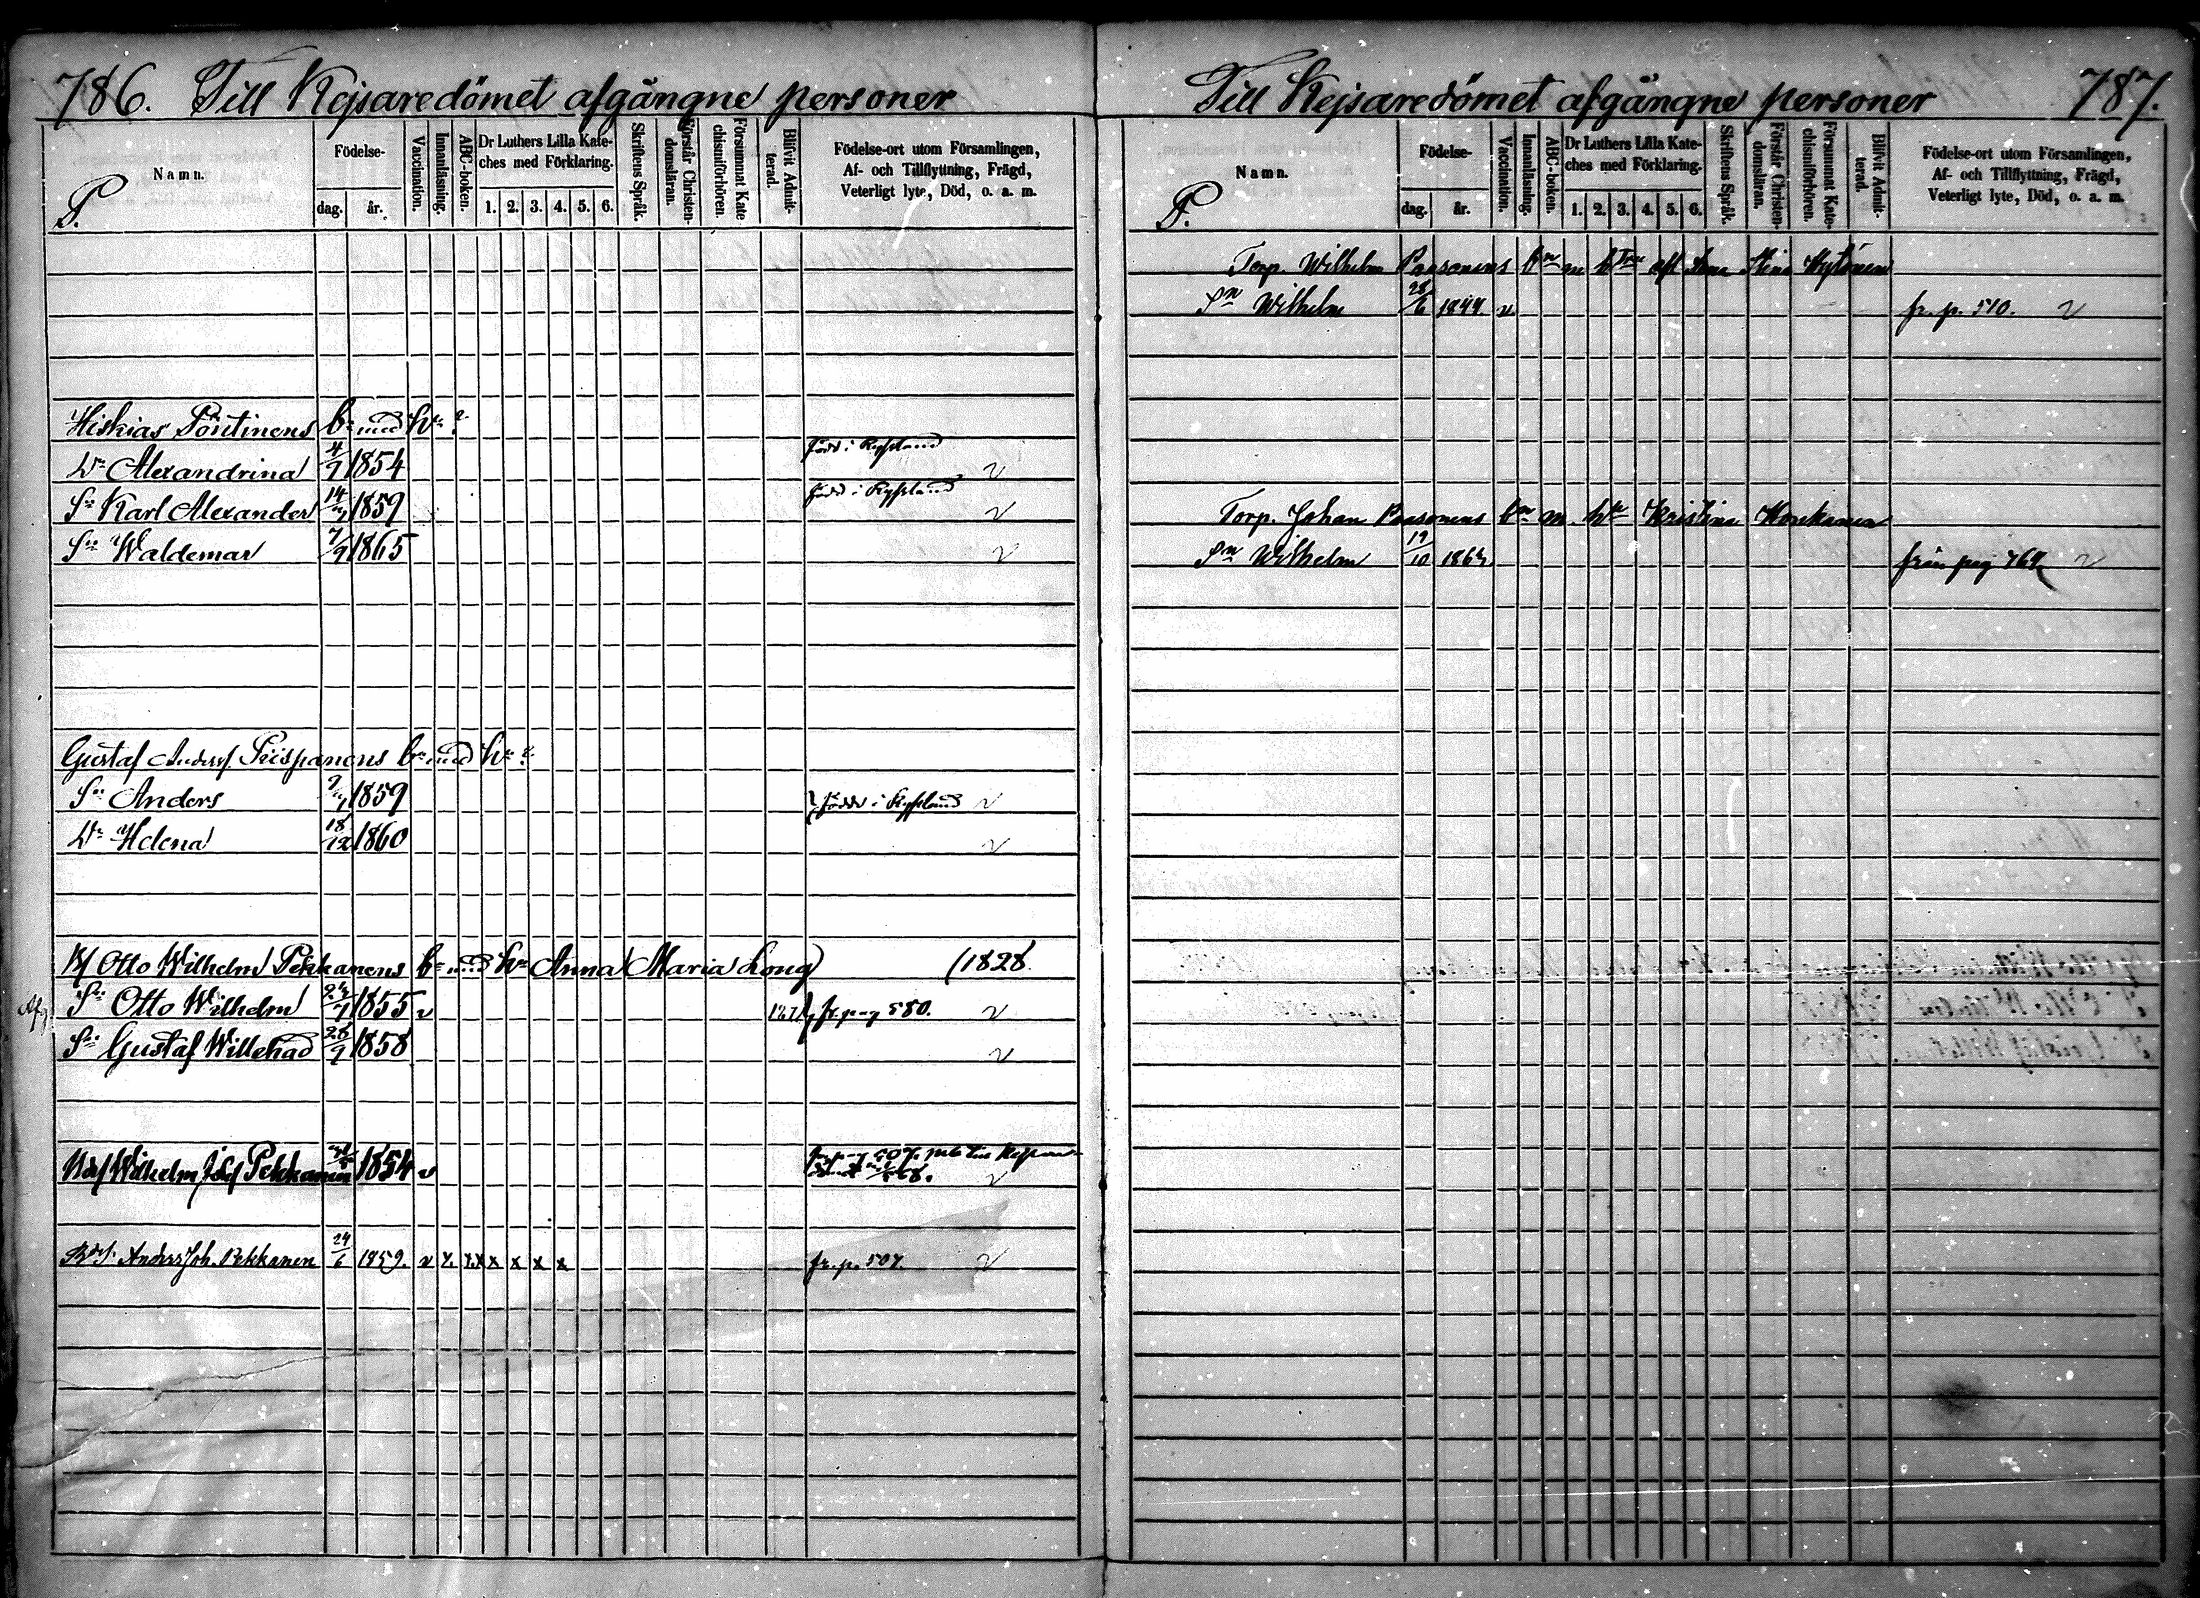 786. Till Kejsaredömet afgångne personer
Namn.
P.
Födelse-
dag.
år.
Vaccination.
Innanläsning.
ABC-boken.
Dr Luthers Lilla Kate-
ches med Förklaring.
1. 2. 3. 4. 5. 6.
Skriftens Språk.
Förstår Christen-
domsläran.
Försummat Kate-
chismiförhören.
Blifvit Admit-
terad.
Födelse-ort utom Församlingen,
Af- och Tillflyttning, Frägd,
Veterligt lyte, Död, o. a. m.
Hiskias Pöntinens bn med hn ?
Dr Alexandrina 4/9 1854 född i Ryssland v
Sn Karl Alexander 14/ 1859 född i Ryssland v
Sn Waldemar 7/9 1865 v
Gustaf Andersf. Piispanens bn med hn ?
Sn Anders 9/ 1859 födde i Ryssland v
Dr Helena 18/12 1860 v
Otto Wilhelm Pekkanens bn med hn Anna Maria Long (1828
Afg Sn Otto Wilhelm 1855 v fr. pag 580. v
Sn Gustaf Willehad 28/9 1858 v
Wilhelm Pekkanen 1854 v v
Anders Joh. Pekkanen 24/6 1859. v x x x x x x x fr. p. 507. v
Till Kejsaredömet afgångne personer 787.
Namn.
P.
Födelse-
dag.
år.
Vaccination.
Innanläsning.
ABC-boken.
Dr Luthers Lilla Kate-
ches med Förklaring.
1. 2. 3. 4. 5. 6.
Skriftens Språk.
Förstår Christen-
domsläran.
Försummat Kate-
chismiförhören.
Blifvit Admit-
terad.
Födelse-ort utom Församlingen,
Af- och Tillflyttning, Frägd,
Veterligt lyte, Död, o. a. m.
Torp. Wilhelm Paasonens bn m afl Stina Hytönen
Sn Wilhelm 28/6 1844 v fr. p. 510. v
Torp. Johan Paasonens bn m. hn Kristina
Sn Wilhelm 19/10 från pag 764 v